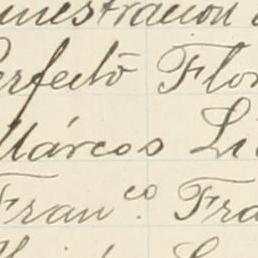 inistracion
Perfecto Flor
Márcos Li
Fran.co Fra